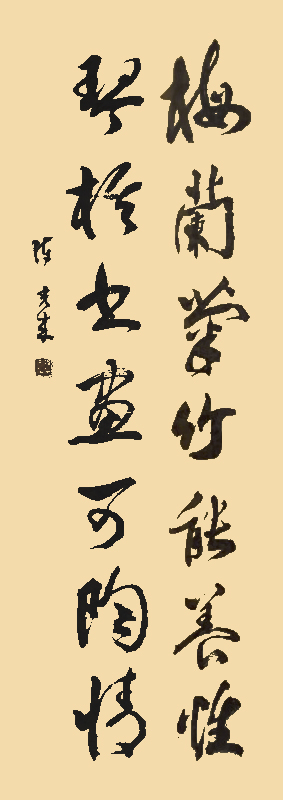 梅蘭菊竹能养性
琴棋书畫可陶情